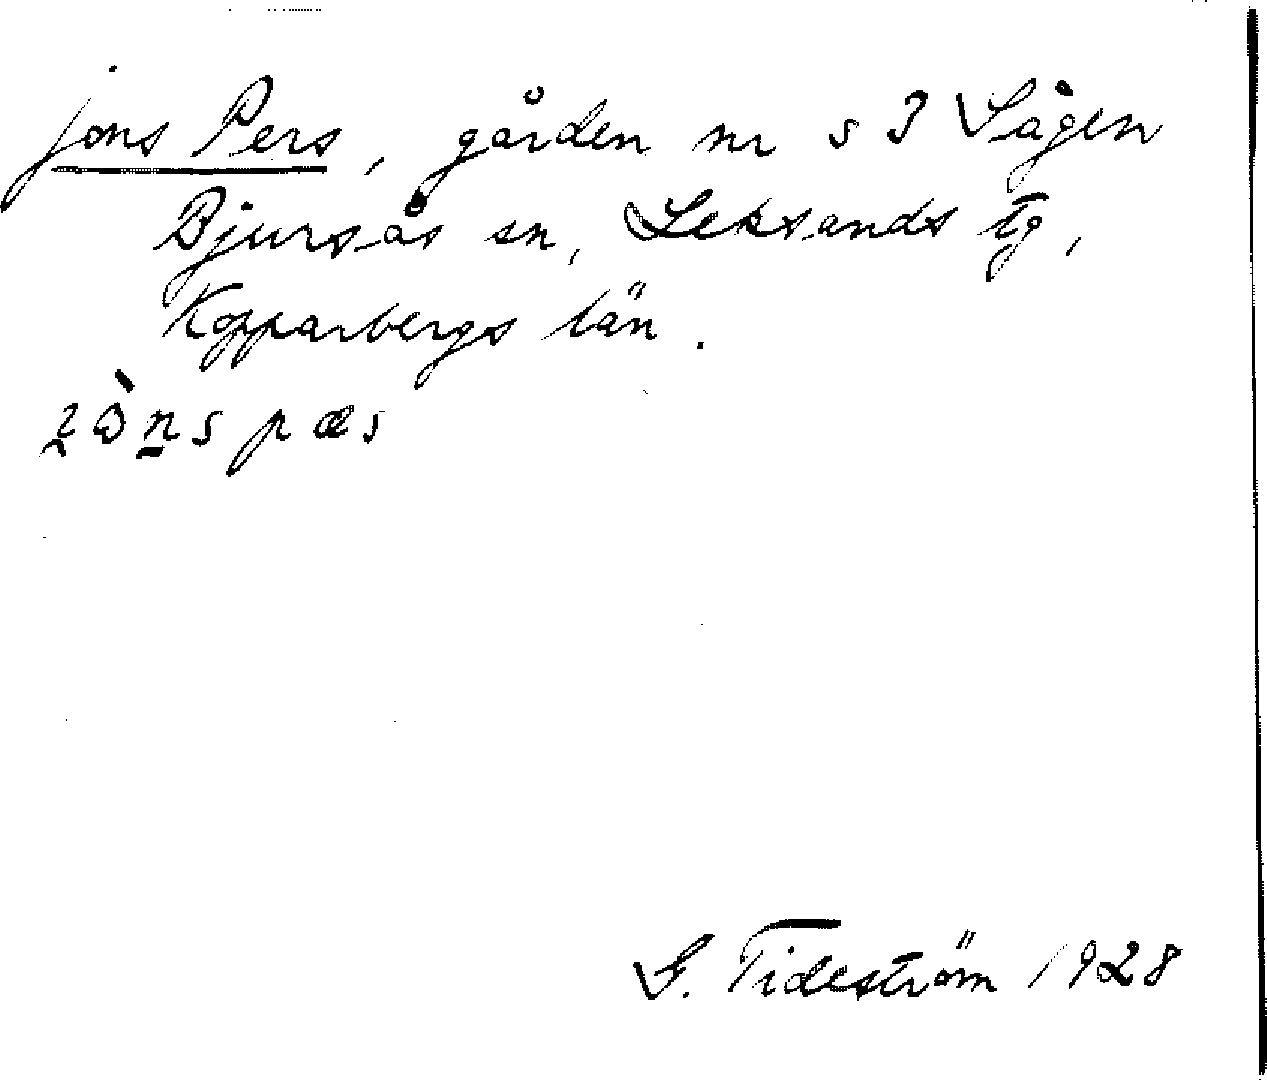 Jons Pers, gården nr 5 I Sågen
Bjursås sn, Leksands tg,
Kopparbergs län.
G. Tideström 1928